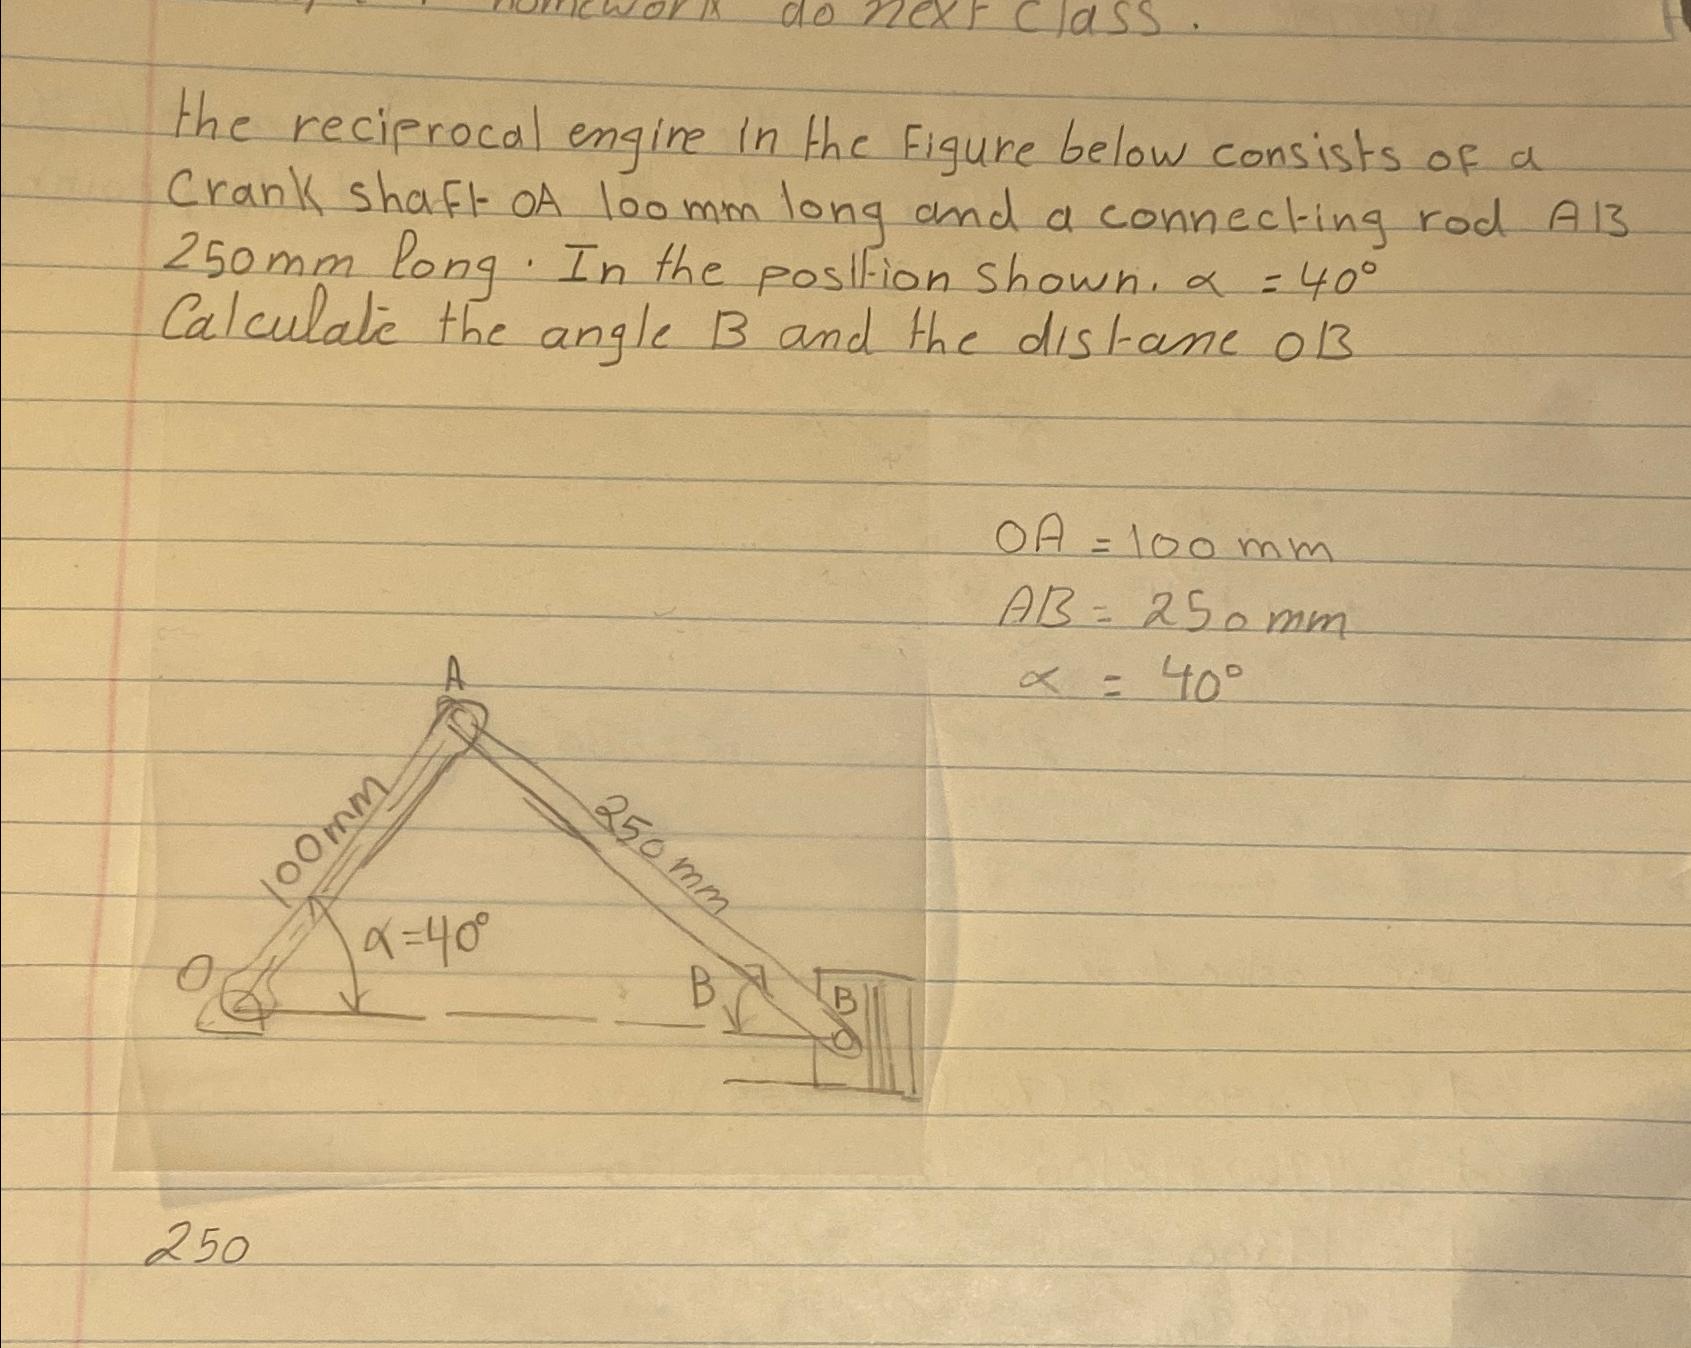 homework do next class.
the reciprocal engine in the Figure below consists of a
Crank shaft OA 100mm long and a connecting rod AB
250mm long. In the position shown. α = 40°
Calculate the angle B and the distane OB
OA = 100 mm
AB = 250 mm
α = 40°
A
100mm
250 mm
α=40°
O
B
B
250